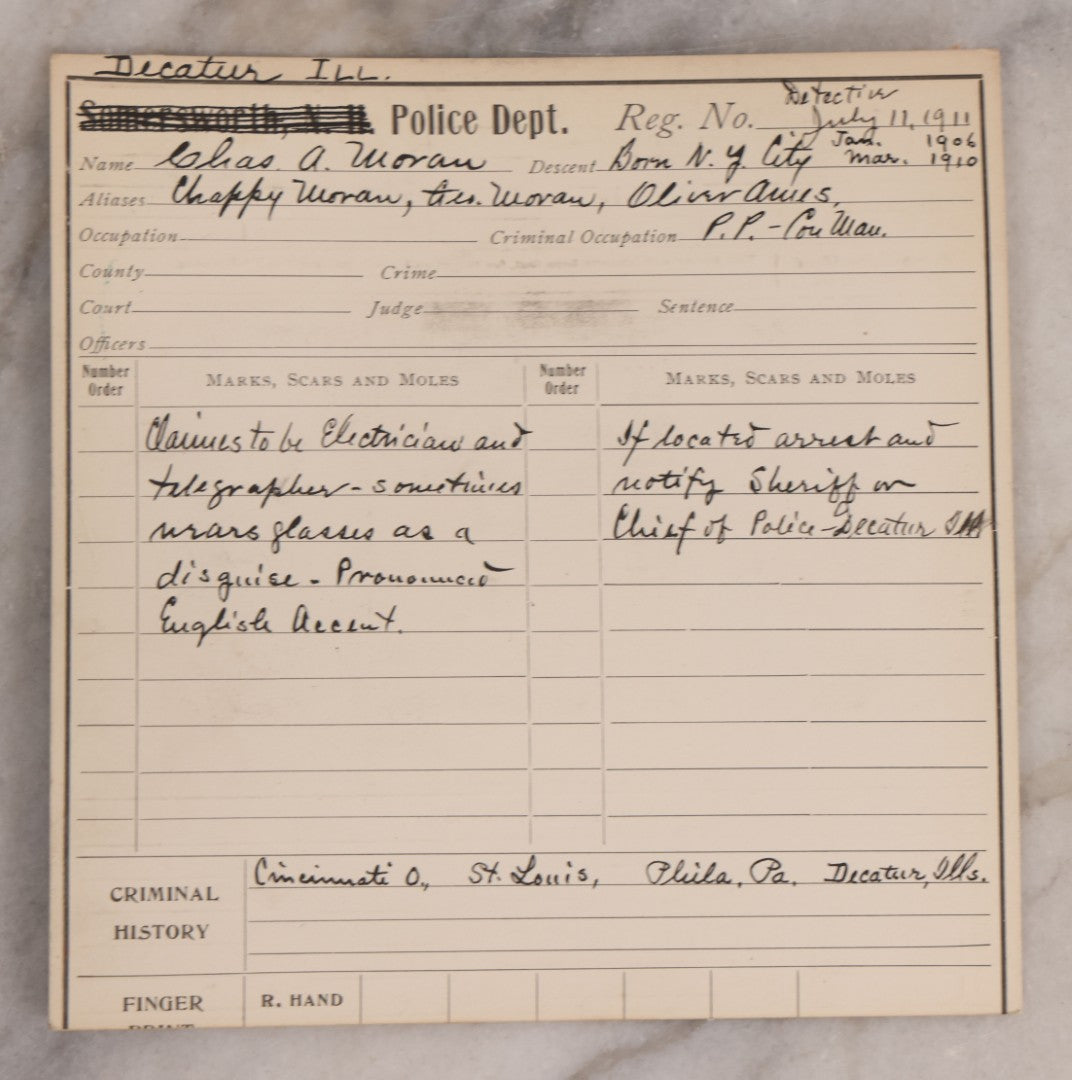 Decatur ILL.
Somersworth, N. H. Police Dept. Reg. No. Detective
July 11, 1911
Name Chas. A. Moran Descent Born N. Y. City Jan. 1906
Mar. 1910
Aliases Chappy Moran, Geo. Moran, Oliver Ames,
Occupation Criminal Occupation P.P. - Con Man.
County Crime
Court Judge Sentence
Officers
Number Order MARKS, SCARS AND MOLES Number Order MARKS, SCARS AND MOLES
Claimes to be Electrician and
telegrapher - sometimes
wears glasses as a
disguise - Pronounced
English Accent.
If located arrest and
notify Sheriff or
Chief of Police - Decatur Ill
CRIMINAL HISTORY Cincinnati O., St. Louis, Phila, Pa. Decatur, Ills.
FINGER PRINT R. HAND